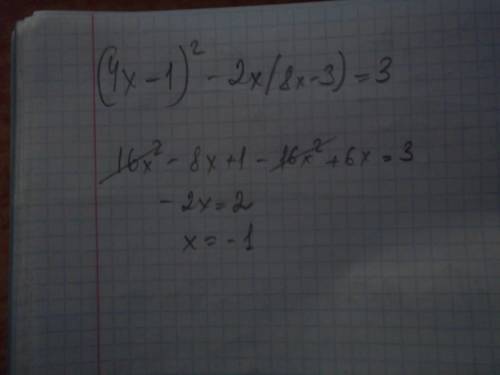 (4x-1)² - 2x(8x-3) = 3
16x² - 8x+1 - 16x² + 6x = 3
- 2x = 2
x = - 1